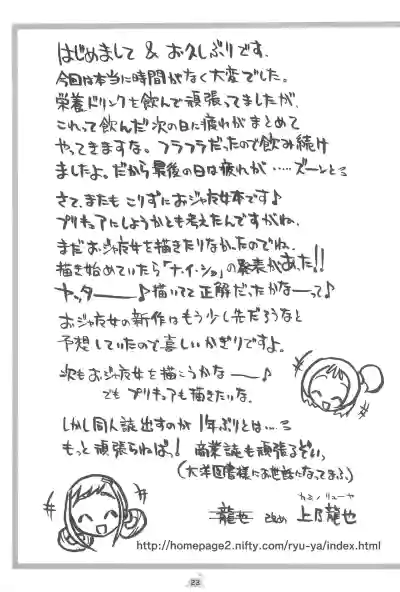 はじめまして & お久しぶりです。
今回は本当に時間がなく大変でした。
栄養ドリンクを飲んで頑張ってましたが、
これって飲んだ次の日に疲れがまとめて
やってきますな。フラフラだったので飲み続け
ましたよ。だから最後の日は疲れが……ズーンとこ
さて、またもこりずにおジャ魔女本です♪
プリキュアにしようかとも考えたんですがね、
まだおジャ魔女を描きたりなかったのでね、
描き始めていたら「ナ・イ・ショ」の発表があた!!
ヤッター――♪描いてて正解だったかなーって♪
おジャ魔女の新作はもう少し先だろうなと
予想していたので喜しいかぎりですよ。
次もおジャ魔女を描こうかな――♪
でもプリキュアも描きたいな。
しかし同人誌出すのが1年ぶりとは…
もっと頑張らねばっ!商業誌も頑張るぞいっ
(大洋図書様にお世話になってまふ)
カミノリューヤ
龍也 改め 上乃龍也
http://homepage2.nifty.com/ryu-ya/index.html
23